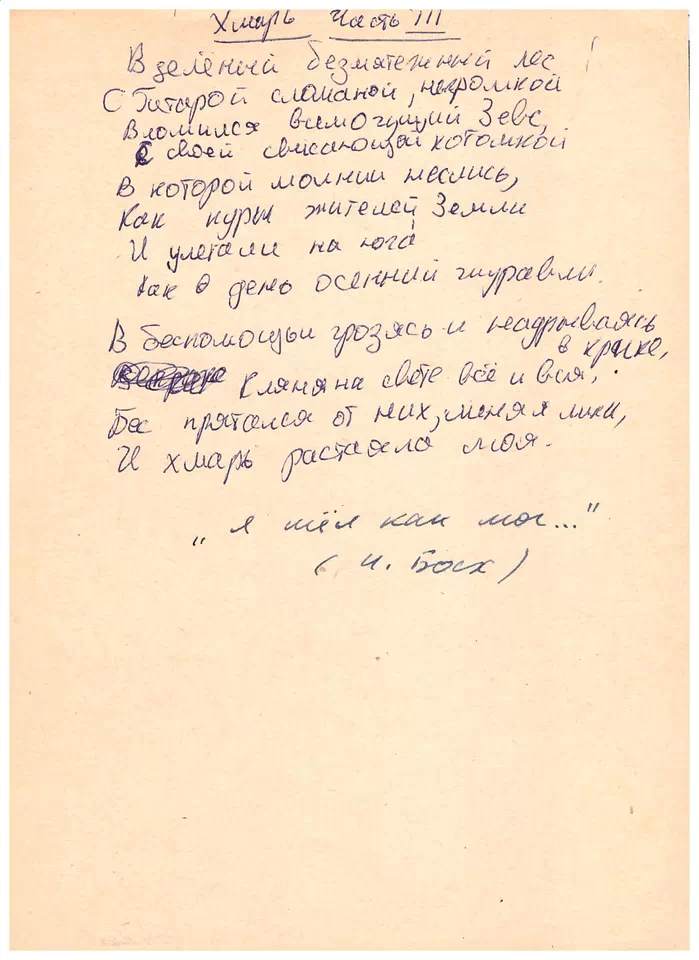 Хмарь Часть III
В зелёный безмятежный лес
С Гитарой сломаной, негромкой
Вломился всмогущий Зевс,
С своей свисающей котомкой
В которой молнии неслись,
Как куры жителей Земли
И улетали на юга
Как в день осенний журавли.
В беспомощьи грозясь и надрываясь
в крике,
Кляня на свете всё и вся,
Бес прятался от них, меняя лики,
И хмарь растаяла моя.
„Я шёл как мог..."
(И. Босх)